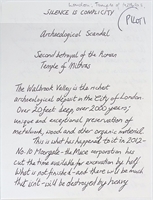 London, Temple of Mithras
(PILOT)
SILENCE IS COMPLICITY
Archaeological Scandal
Second betrayal of the Roman
Temple of Mithras
The Walbrook Valley is the richest
archaeological deposit in the City of London.
Over 20 feet deep, over 2000 years,
unique and exceptional preservation of
metalwork, wood and other organic material.
This is what has happened to it in 2012 -
the Mace corporation has
cut the time available for excavation by half.
What is not finished - and there will be much
that isn't - will be destroyed by heavy